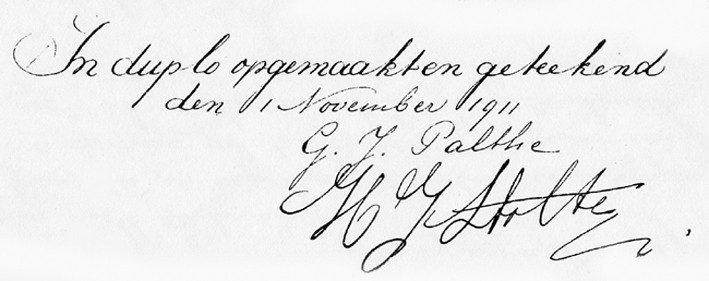 In duplo opgemaakt en geteekend
den 1 November 1911
G. J. Palthe
H J Stolte